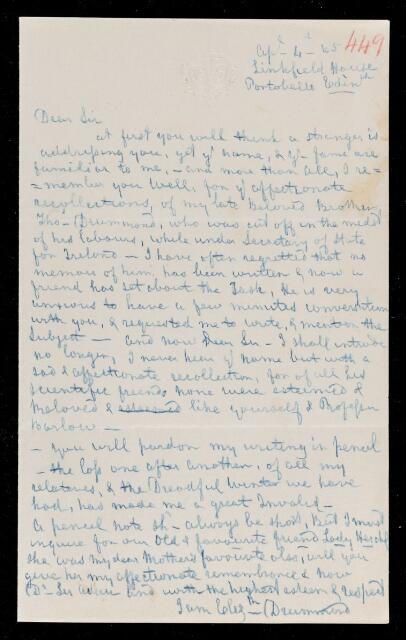 Apl 4th 65
449
Linkfield House
Portobello Edinh
Dear Sir
at first you will think a stranger is
addressing you, yet yr name, & yr fame are
familiar to me, - and more than all, I re=
=member you well, for yr affectionate
recollections, of my late Beloved Brother
Tho- Drummond, who was cut off in the midst
of his labours, while under Secretary of State
for Ireland - I have often regretted that no
memoir of him, has been written & now a
friend has set about the Task, He is very
anxious to have a few minutes conversation
with you, & requested me to write, & mention the
Subject - and now Dear Sir - I shall intrude
no longer, I never hear yr name but with a
sad & affectionate recollection, for of all his
Scientific friends none were esteemed &
beloved & esteemed like yourself & Professor
Barlow -
- you will pardon my writing in pencil
- the loss one after another, of all my
relatives, & the Dreadful Winter we have
had, has made me a great Invalid -
A pencil note sh- always be short, But I must
inquire for our Old & favourite friend Lady Herschel
she was my dear Mothers favourite also, will you
give her my affectionate remembrance & now
Dr Sir adieu and with the highest esteem & respect
I am Elizth Drummond